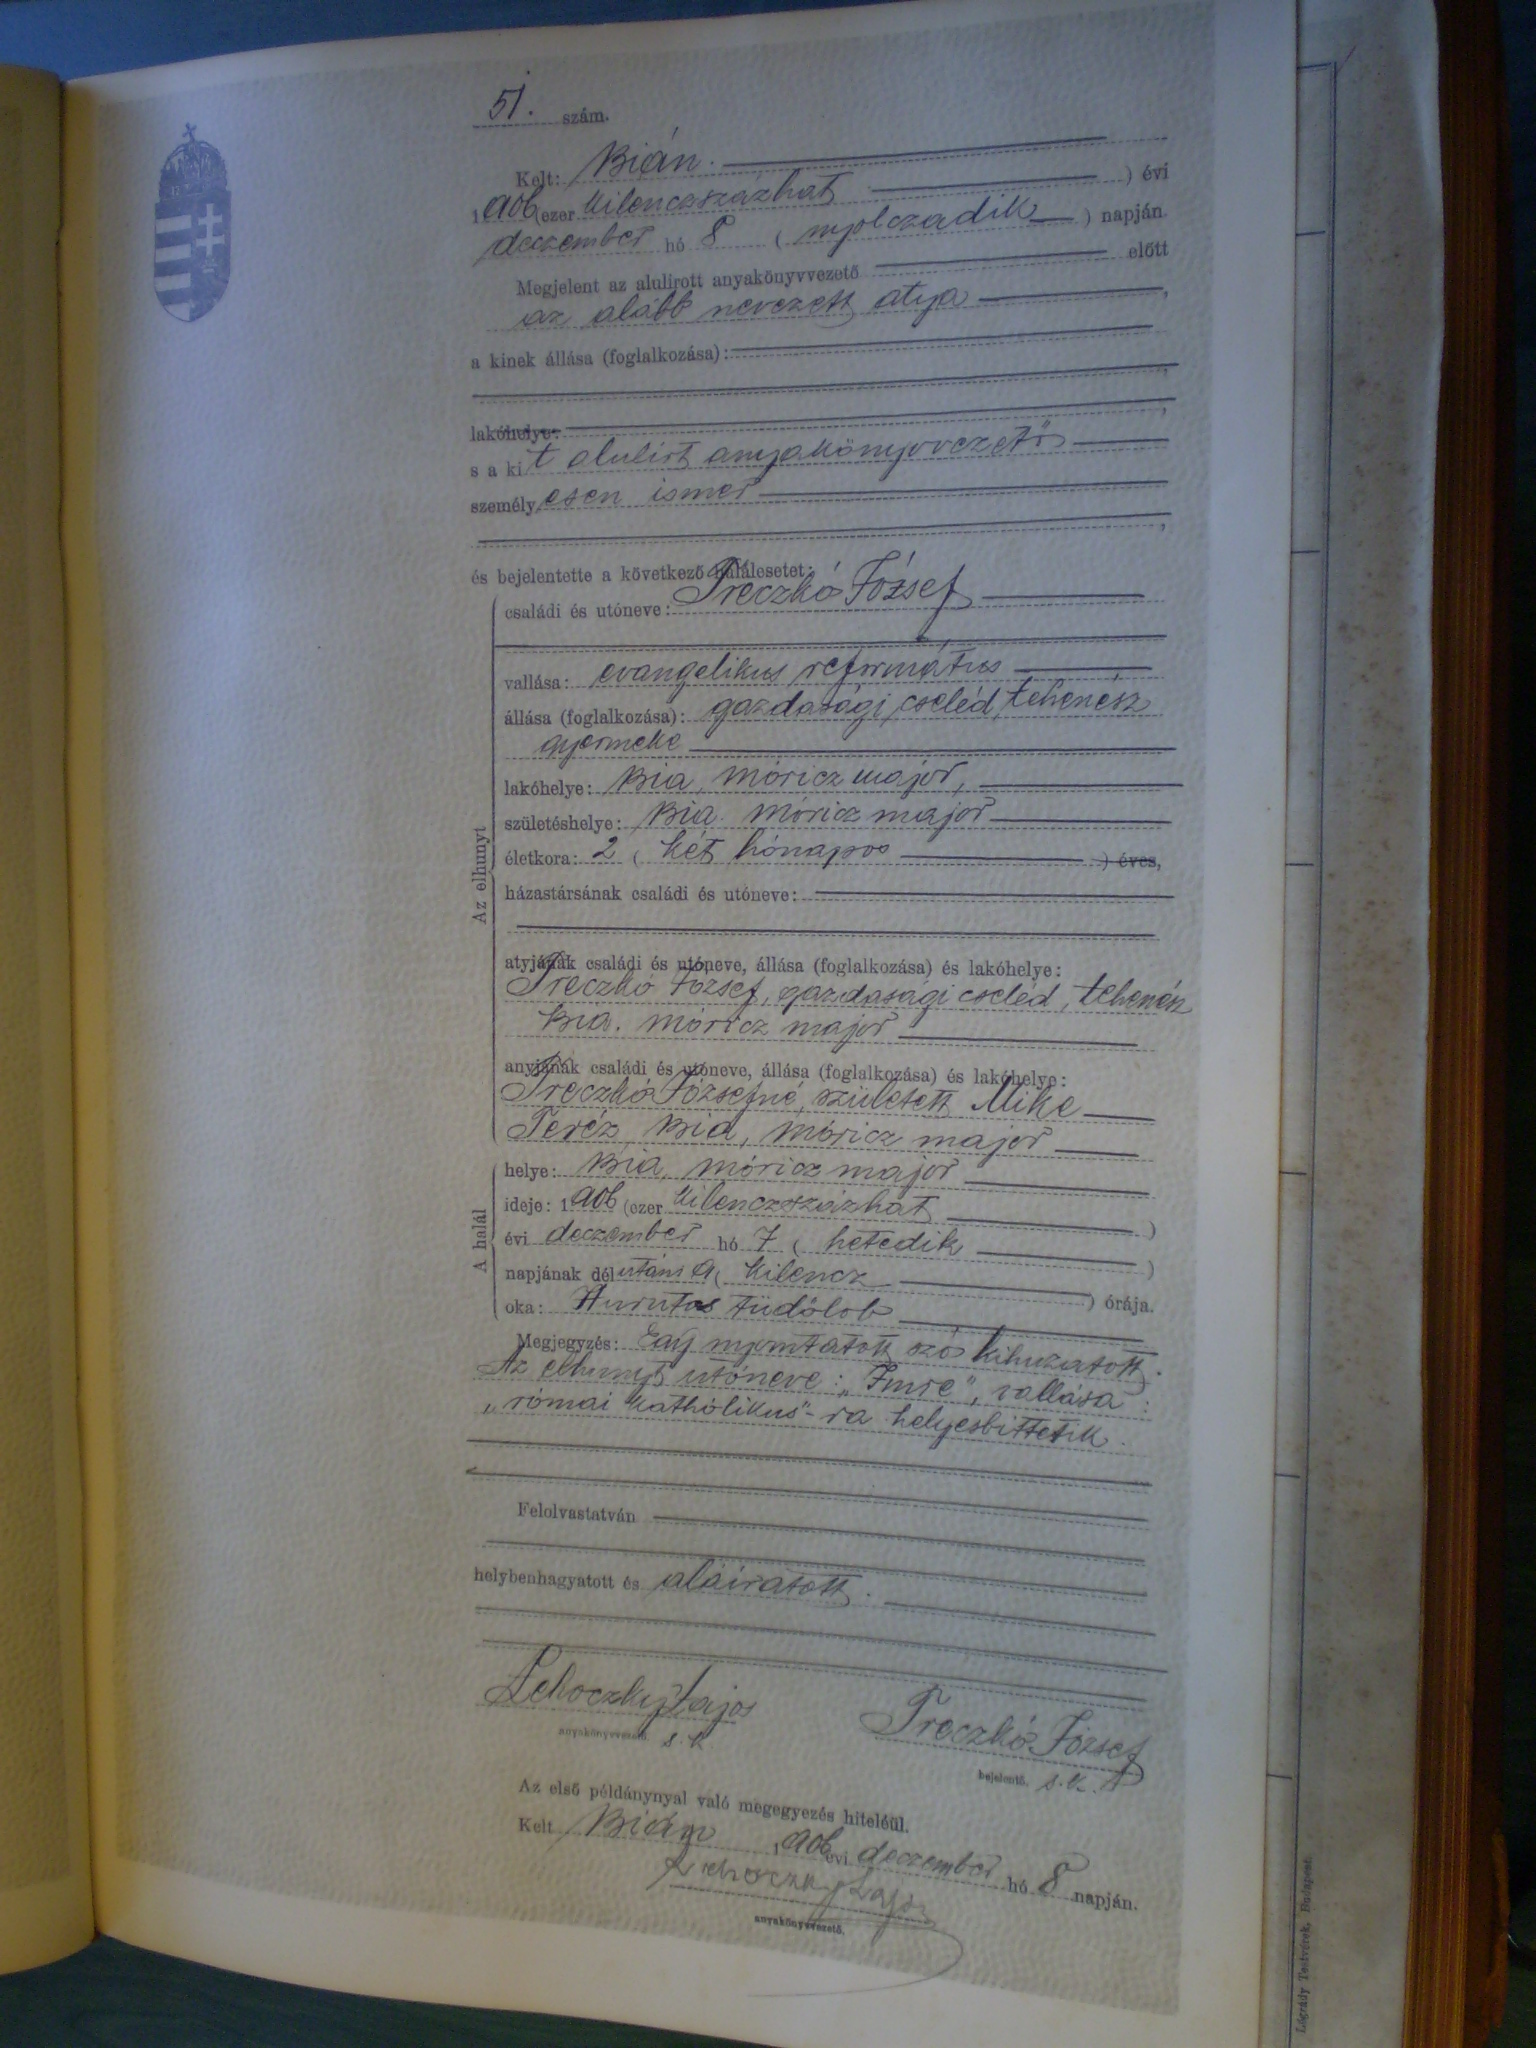 51. szám.
Kelt: Bián.
1906 (ezer kilenczszázhat ) évi
deczember hó 8 ( nyolczadik ) napján.
Megjelent az alulirott anyakönyvvezető előtt
az alább nevezett atya,
a kinek állása (foglalkozása):
lakóhelye:
s a kit alulirt anyakönyvvezető
személyesen ismer
és bejelentette a következő halálesetet:
családi és utóneve: Preczkó József
vallása: evangelikus református
állása (foglalkozása): gazdasági cseléd, tehenész
gyermeke
Az elhunyt
lakóhelye: Bia, móricz major,
születéshelye: Bia. móricz major
életkora: 2 ( két hónapos ) éves,
házastársának családi és utóneve:
atyjának családi és utóneve, állása (foglalkozása) és lakóhelye:
Preczkó József, gazdasági cseléd, tehenész
Bia. móricz major
anyjának családi és utóneve, állása (foglalkozása) és lakóhelye:
Preczkó Józsefné, született Mike
Teréz, Bia, móricz major
A halál
helye: Bia, móricz major
ideje: 1906 (ezer kilenczszázhat )
évi deczember hó 7 ( hetedik )
napjának délutáni 9 ( kilencz ) órája.
oka: Hurutos tüdőlob
Megjegyzés: Egy nyomtatott szó kihuzatott.
Az elhunyt utóneve: „Imre", vallása:
„római katholikus"-ra helyesbittetik.
Felolvastatván
helybenhagyatott és aláiratott.
Lehoczky Lajos
anyakönyvvezető. s. k
Preczkó József
bejelentő. s. k.
Az első példánynyal való megegyezés hiteléül.
Kelt Bián 1906 évi deczember hó 8 napján.
Lehoczky Lajos
anyakönyvvezető.
Légrády Testvérek, Budapest.